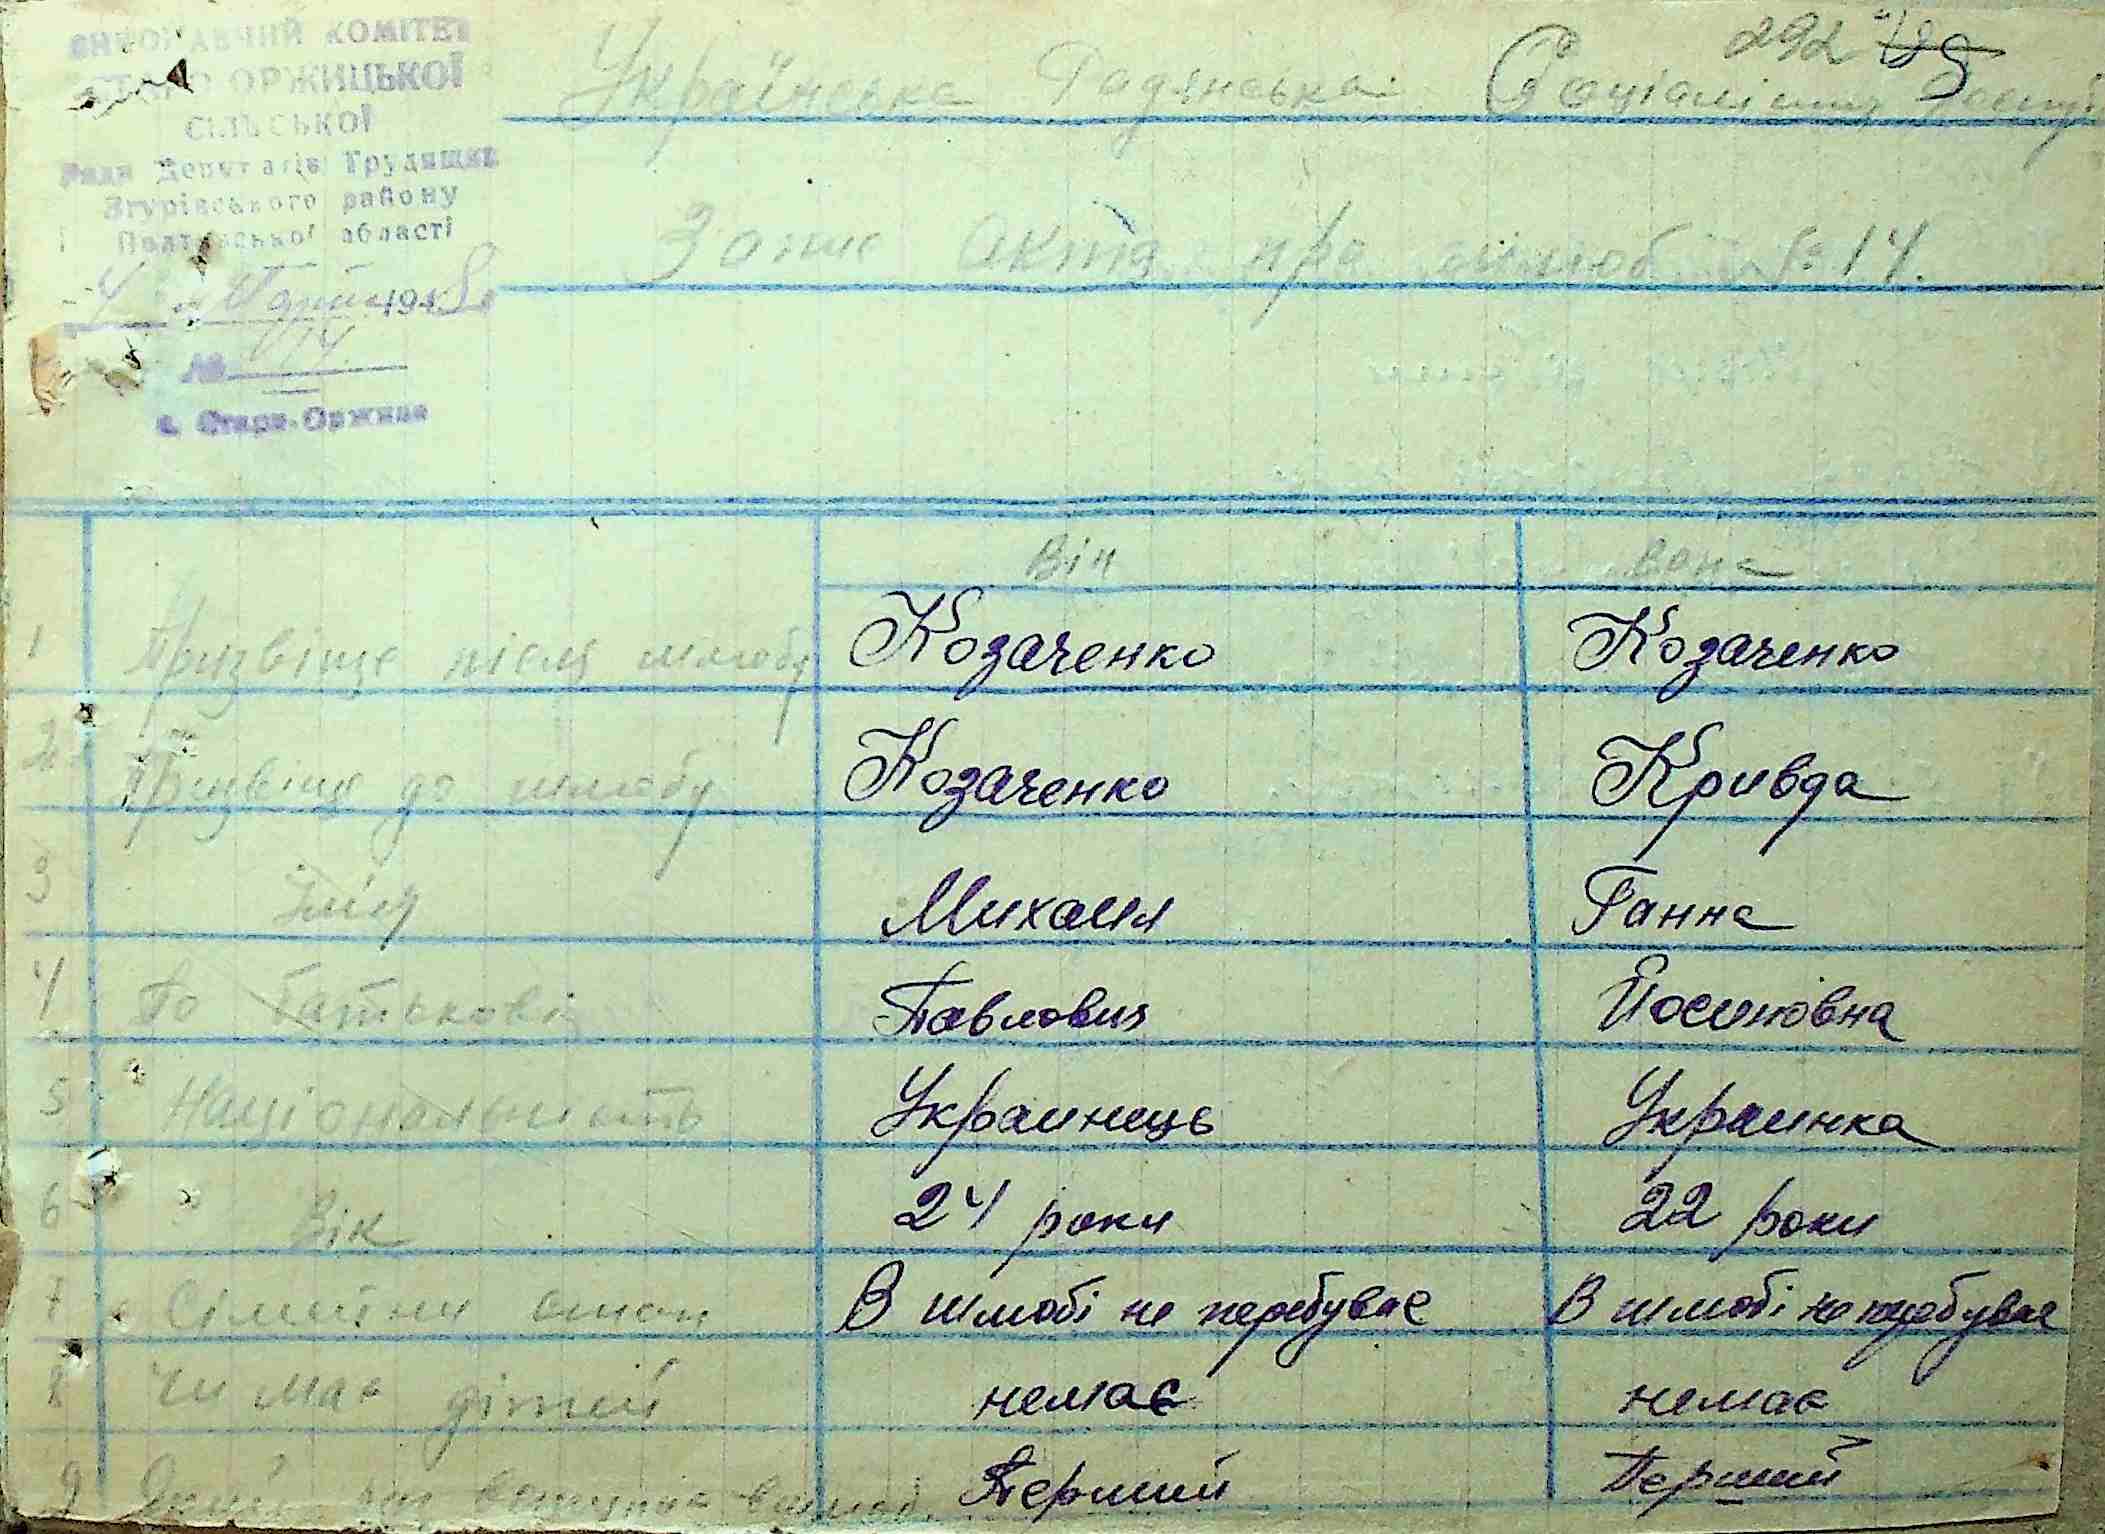 292
ВИКОНАВЧИЙ КОМІТЕТ
СТАРО ОРЖИЦЬКОЇ
СІЛЬСЬКОЇ
Ради Депутатів Трудящих
Згурівського району
Полтавської області
4 1948
№ 14
с. Стара-Оржиця
Українська Радянська Соціалістич
Запис акта про шлюб № 14.
Він Вона
1 Призвіще після шлюбу Козаченко Козаченко
2 Призвіще до шлюбу Козаченко Кривда
3 Імія Михаил Ганна
4 По батькові Павлович Йосиповна
5 Національність Украинець Украинка
6 Вік 24 роки 22 роки
7 Сімейни стан В шлюбі не перебуває В шлюбі не перебуває
8 Чи має дітей немає немає
9 Який раз вступає в шлюб Перший Перший